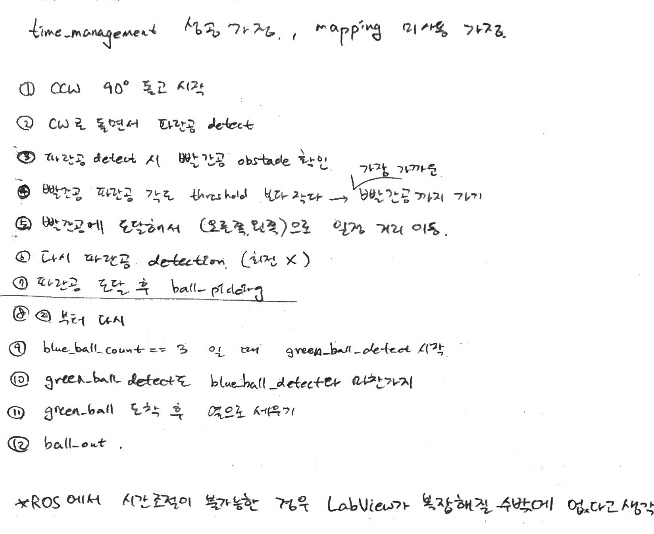 time_management 성공 가정. , mapping 미사용 가정.
① CCW 90° 돌고 시작
② CW로 돌면서 파란공 detect
③ 파란공 detect 시 빨간공 obstacle 확인.
가장 가까운
④ 빨간공 파란공 각도 threshold 보다 작다 → 빨간공까지 가기
⑤ 빨간공에 도달해서 (오른쪽, 왼쪽)으로 일정 거리 이동.
⑥ 다시 파란공 detection. (회전 X)
⑦ 파란공 도달 후 ball-picking
⑧ ② 부터 다시
⑨ blue_ball_count == 3 일 때 green_ball_detect 시작.
⑩ green_ball detect도 blueball_detect와 마찬가지
⑪ green_ball 도착 후 옆으로 세우기
⑫ ball_out .
*ROS에서 시간조절이 불가능한 경우 LabView가 복잡해질 수밖에 없다고 생각